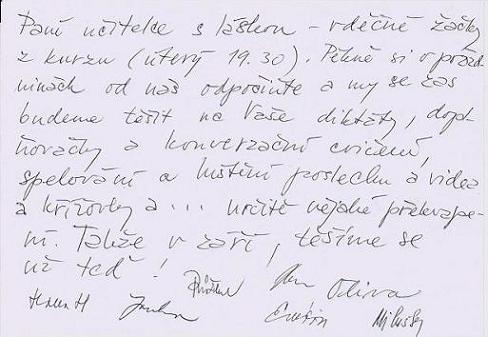 Paní učitelce s láskou – vděčné žačky
z kurzu (úterý 19.30). Pěkně si o prázd-
ninách od nás odpočiňte a my se zas
budeme těšit na Vaše diktáty, dopl-
ňovačky a konverzační cvičení,
spelování a luštění poslechu a videa
a křížovky a ... určitě nějaké překvape-
ní. Takže v září, těšíme se
už teď!
Růžena Oliva
Miluška